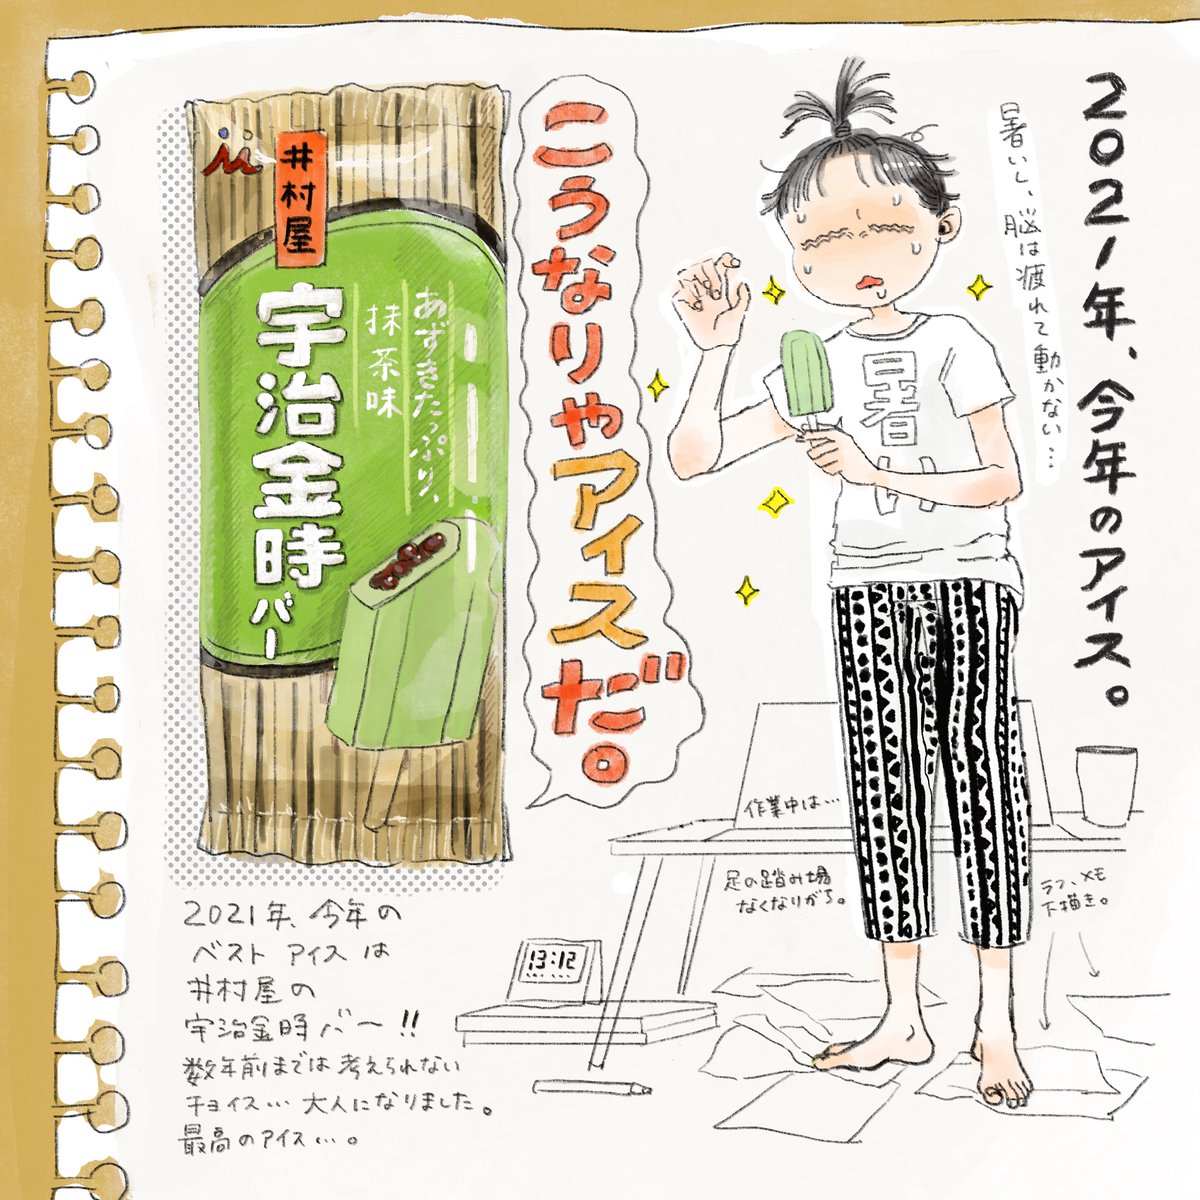 2021年、今年のアイス。
暑いし、脳は疲れて動かない…
こうなりゃアイスだ。
井村屋
あずきたっぷり、
抹茶味
宇治金時バー
暑い
作業中は…
足の踏み場
なくなりがち。
ラフ、メモ
下描き。
13:12
2021年、今年の
ベストアイスは
井村屋の
宇治金時バー!!
数年前までは考えられない
チョイス…大人になりました。
最高のアイス…。